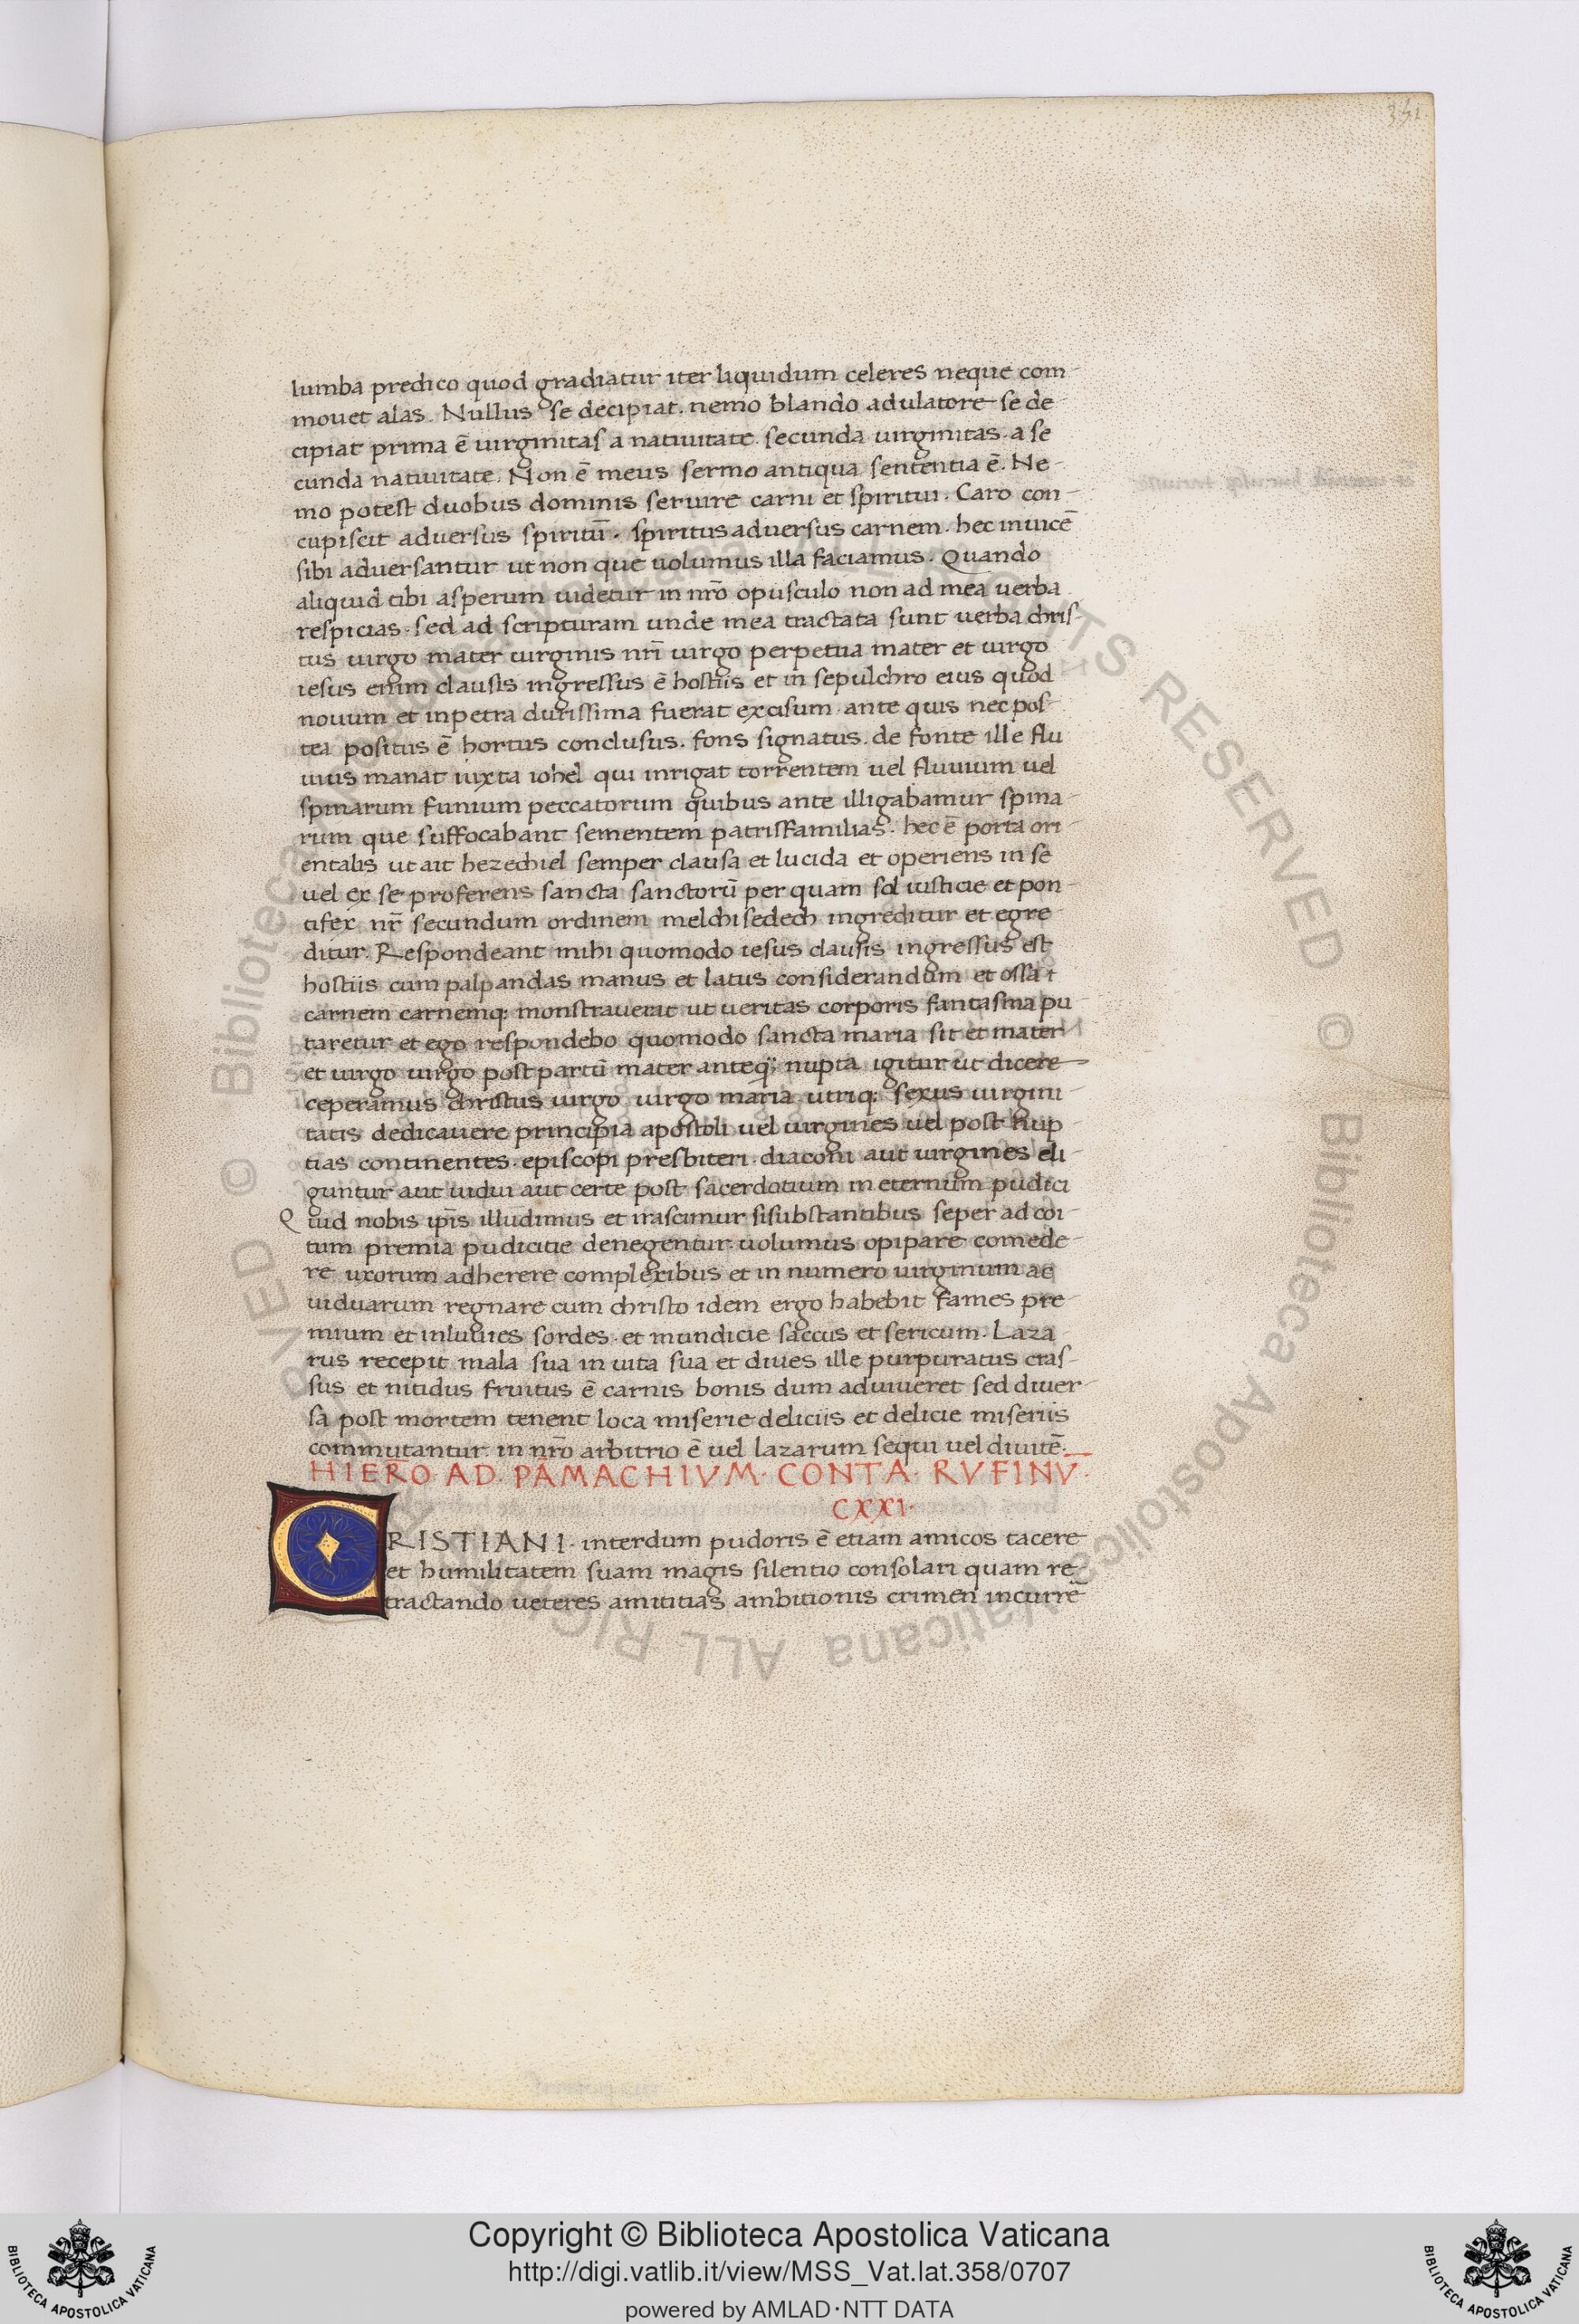 351
lumba predico quod gradiatur iter liquidum celeres neque com-
mouet alas. Nullus se decipiat. nemo blando adulatore se de-
cipiat prima ē uirginitas a natiuitate. secunda uirginitas. a se
cunda natiuitate. Non ē meus sermo antiqua sententia ē. Ne-
mo potest duobus dominis seruire carni et spiritui. Caro con-
cupiscit aduersus spiritū. spiritus aduersus carnem. hec inuicē
sibi aduersantur ut non que uolumus illa faciamus. Quando
aliquid tibi asperum uidetur in nr̄o opusculo non ad mea uerba
respicias. sed ad scripturam unde mea tractata sunt uerba chris-
tus uirgo mater uirginis nr̄i uirgo perpetua mater et uirgo
iesus enim clausis ingressus ē hostiis et in sepulchro eius quod
nouum et inpetra durissima fuerat excisum ante quis nec pos-
tea positus ē hortus conclusus. fons signatus. de fonte ille flu
uius manat iuxta iohel qui inrigat torrentem uel fluuium uel
spinarum funium peccatorum quibus ante illigabamur spina-
rum que suffocabant sementem patrisfamilias. hec ē porta ori-
entalis ut ait hezechiel semper clausa et lucida et operiens in se
uel ex se proferens sancta sanctorū per quam sol iusticie et pon-
tifex nr̄ secundum ordinem melchisedech ingreditur et egre-
ditur. Respondeant mihi quomodo iesus clausis ingressus est
hostiis cum palpandas manus et latus considerandum et ossa
carnem carnemq; monstrauerat ut ueritas corporis fantasma pu
taretur et ego respondebo quomodo sancta maria sit et mater
et uirgo uirgo post partū mater nupta igitur ut dicere
ceperamus christus uirgo uirgo maria utriq; sexus uirgini
tatis dedicauere principia apostoli uel uirgines uel post nup
tias continentes. episcopi presbiteri. diaconi aut uirgines eli-
guntur aut uidui aut certe post sacerdotium in eternum pudici
Quid nobis ip̄is illudimus et irascimur sisubstantibus seper ad coi-
tum premia pudicitie denegentur. uolumus opipare comede-
re uxorum adherere complexibus et in numero uirginum ac
uiduarum regnare cum christo idem ergo habebit fames pre-
mium et inluuies sordes. et mundicie saccus et sericum. Laza
rus recepit mala sua in uita sua et diues ille purpuratus cras-
sus et nitidus fruitus ē carnis bonis dum aduiueret sed diuer-
sa post mortem tenent loca miserie deliciis et delicie miseriis
commutantur. in nr̄o arbitrio ē uel lazarum sequi uel diuitē.
HIERO AD. PĀMACHIVM. CONTA. RVFINV̄.
CXXI.
CRISTIANI. interdum pudoris ē etiam amicos tacere
et humilitatem suam magis silentio consolari quam re-
tractando ueteres amititias ambitionis crimen incurrē
Copyright © Biblioteca Apostolica Vaticana
http://digi.vatlib.it/view/MSS_Vat.lat.358/0707
powered by AMLAD·NTT DATA